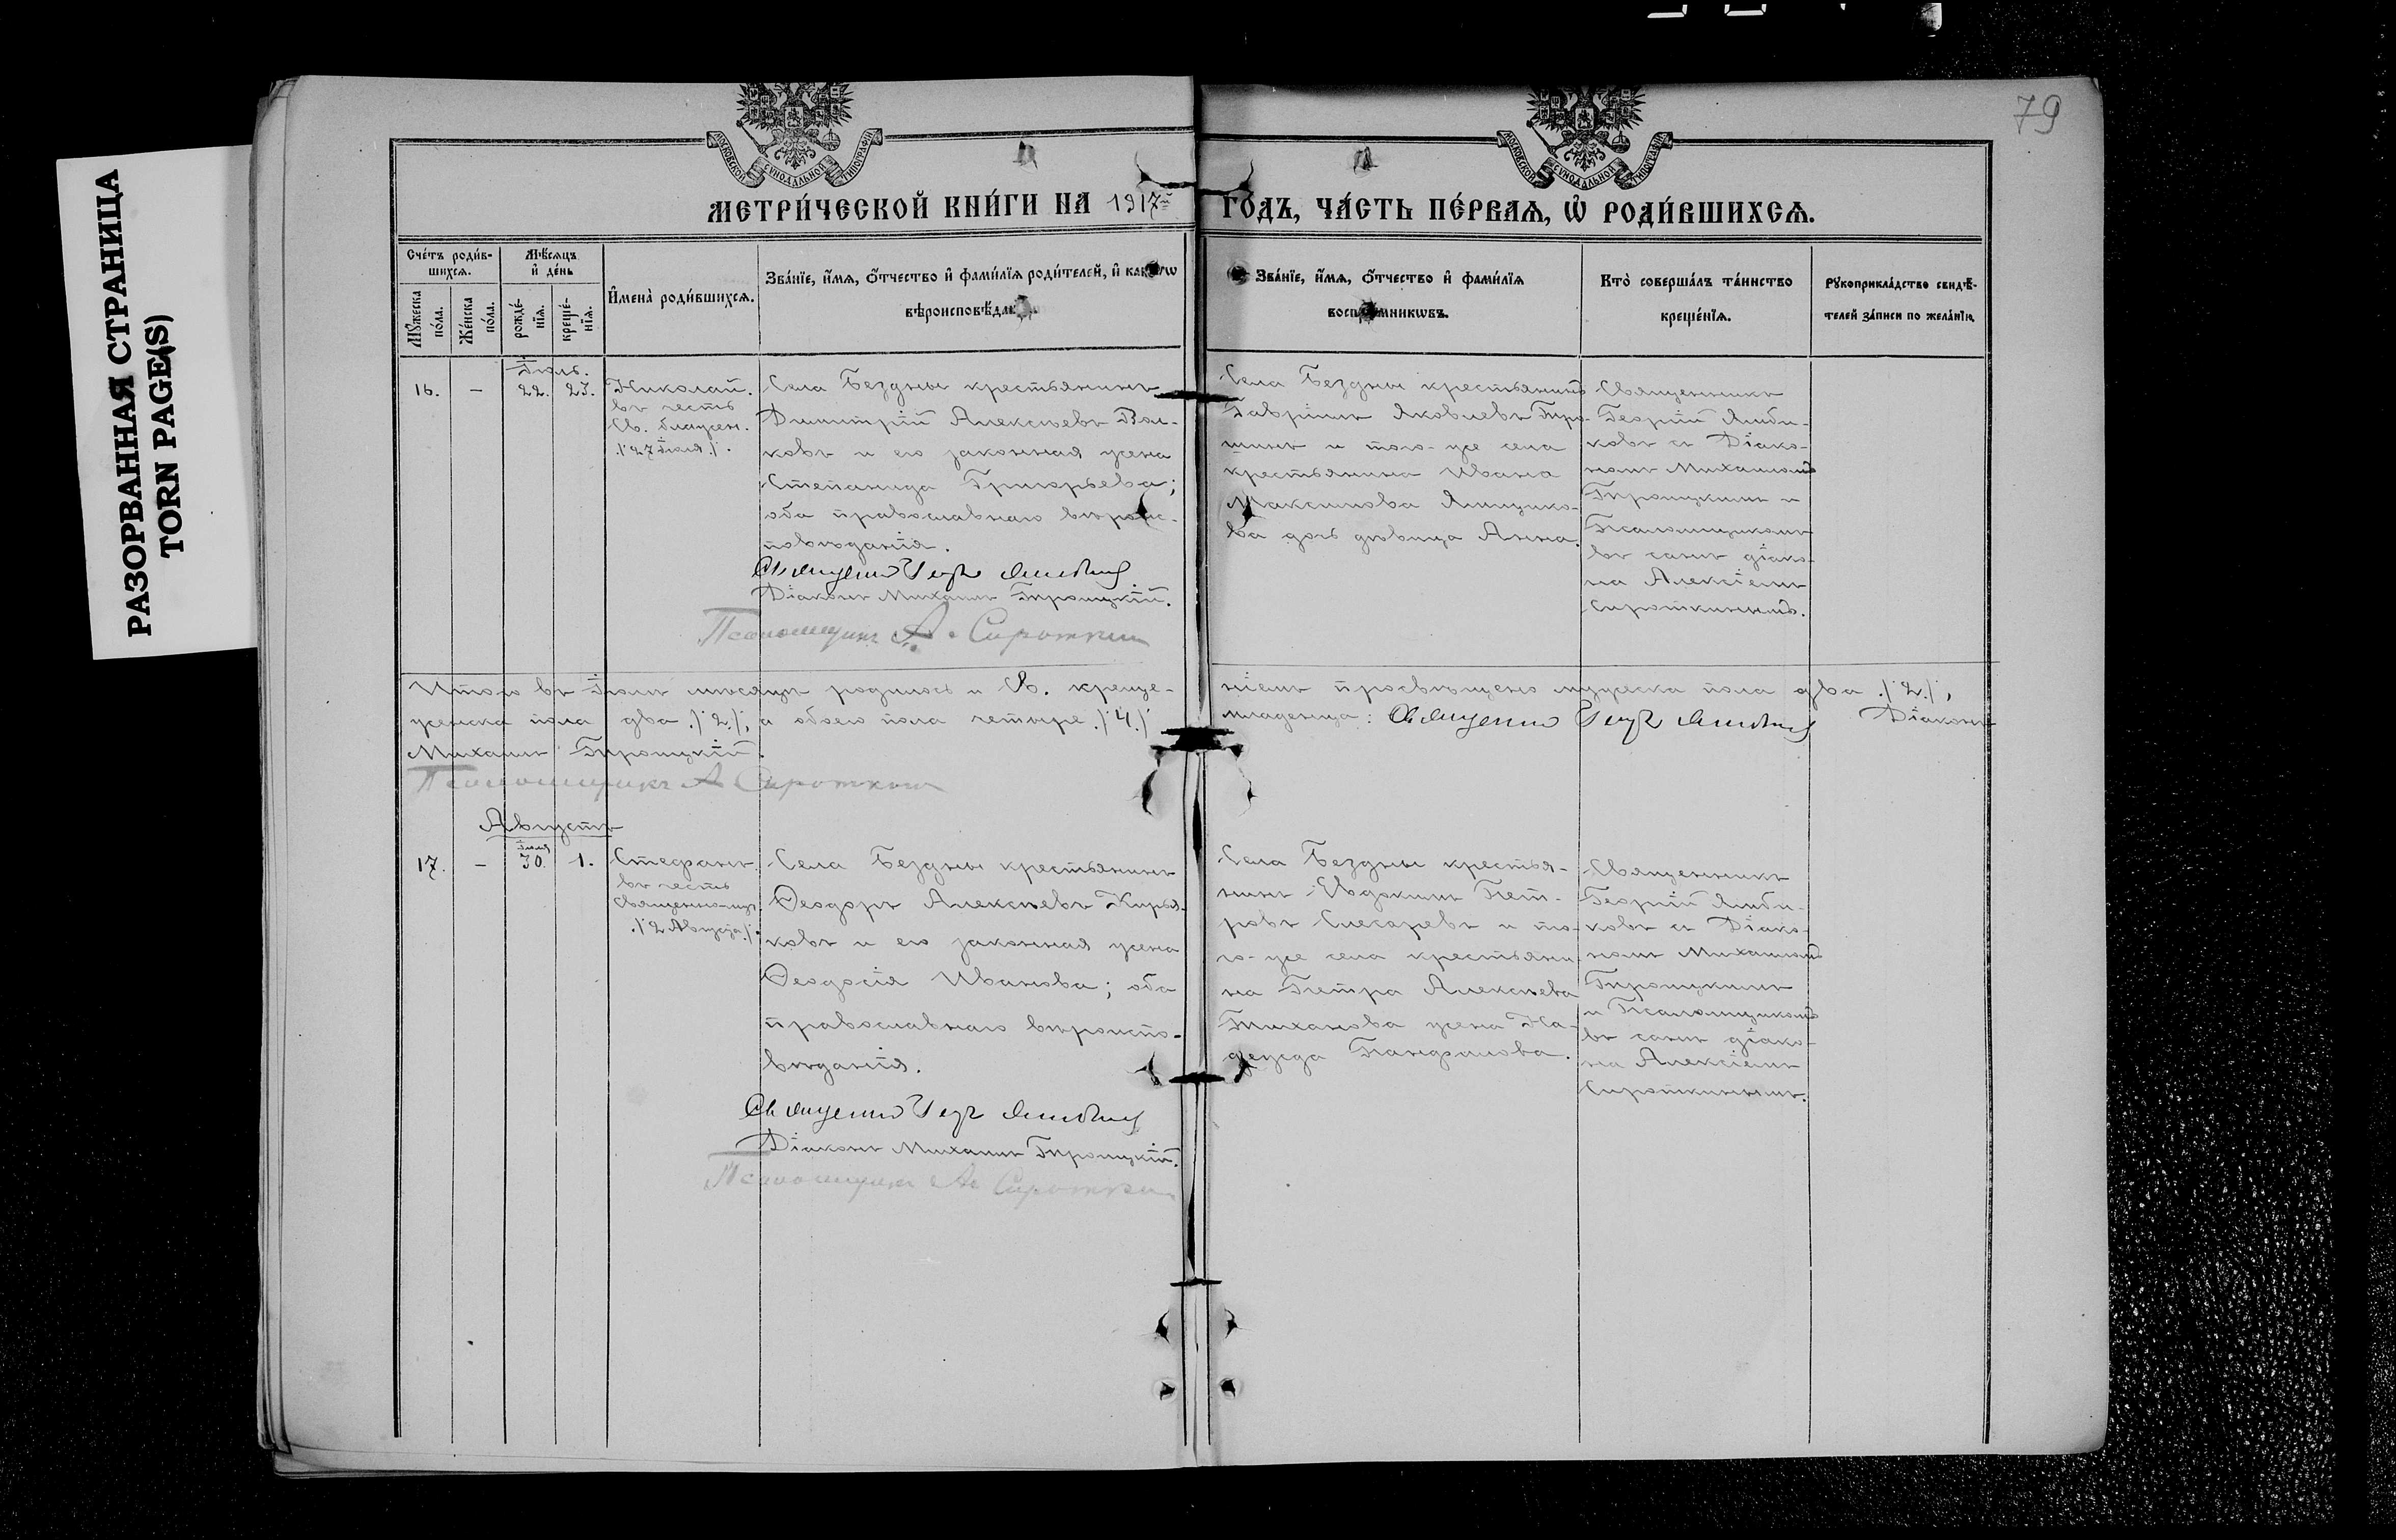 РАЗОРВАННАЯ СТРАНИЦА
TORN PAGE(S)
79
МОСКОВСКОЙ СѴНОДАЛЬНОЙ ТИПОГРАФІИ
МОСКОВСКОЙ СѴНОДАЛЬНОЙ ТИПОГРАФІИ
МЕТРИ́ЧЕСКОЙ КНИ́ГИ НА 1917й ГО́ДЪ, ЧА́СТЬ ПЕ́РВАЯ, Ѡ҆ РОДИ́ВШИХСѦ.
Сче́тъ роди́в-
шихсѧ.
Мѣ́сѧцъ
и҆ де́нь
Мꙋ́жеска
по́ла.
Же́нска
по́ла.
рожде́-
нїѧ.
креще́-
нїѧ.
И҆мена̀ роди́вшихсѧ.
Зва́нїе, и҆́мѧ, ѻ҆́тчество и҆ фами́лїѧ роди́телей, и҆
вѣроисповѣ́да
Зва́нїе, и҆́мѧ, ѻ҆́тчество и҆ фами́лїѧ
восп мникѡвъ.
Кто̀ соверша́лъ та́инство
креще́нїѧ.
Рꙋкоприкла́дство свидѣ́-
телей за́писи по жела́нїю.
Іюль.
16.
-
22.
23.
Николай.
въ честь
Св. блажен.
./27 Іюля./.
Села Бездны крестьянинъ
Димитрій Алексѣевъ Вол-
ковъ и его законная жена
Степанида Григорьева;
оба православнаго вѣроис-
повѣданія.
Діаконъ Михаилъ Троицкій.
Псаломщикъ А. Сироткин
Села Бездны крестьянинъ
Гавріилъ Яковлевъ Тро-
шинъ и того-же села
крестьянина Ивана
Максимова Ямщико-
ва дочь дѣвица Анна.
Священникъ
Георгій Ямби-
ковъ съ Діако-
номъ Михаиломъ
Троицкимъ и
Псаломщикомъ
въ санѣ діако-
на Алексіемъ
Сироткинымъ.
Итого въ Іюлѣ мѣсяцѣ родилось и Св. креще- ніемъ просвѣщено мужеска пола два ./2./,
женска пола два ./2./, а обоего пола четыре ./4./ младенца: Діаконъ
Михаилъ Троицкій.
Псаломщикъ А Сироткин
Августъ
17.
-
Іюля
30.
1.
Стефанъ.
въ честь
Священно-муч.
./2 Августа./.
Села Бездны крестьянинъ
Ѳеодоръ Алексѣевъ Кирья-
ковъ и его законная жена
Ѳеодосія Иванова; оба
православнаго вѣроиспо-
вѣданія.
Діаконъ Михаилъ Троицкій.
Псаломщикъ А. Сироткин
Села Бездны крестья-
нинъ Евдокимъ Пет-
ровъ Слесаревъ и то-
го-же села крестьяни-
на Петра Алексѣева
Тиханова жена На-
дежда Панфилова.
Священникъ
Георгій Ямби-
ковъ съ Діако-
номъ Михаиломъ
Троицкимъ
и Псаломщикомъ
въ санѣ діако-
на Алексіемъ
Сироткинымъ.